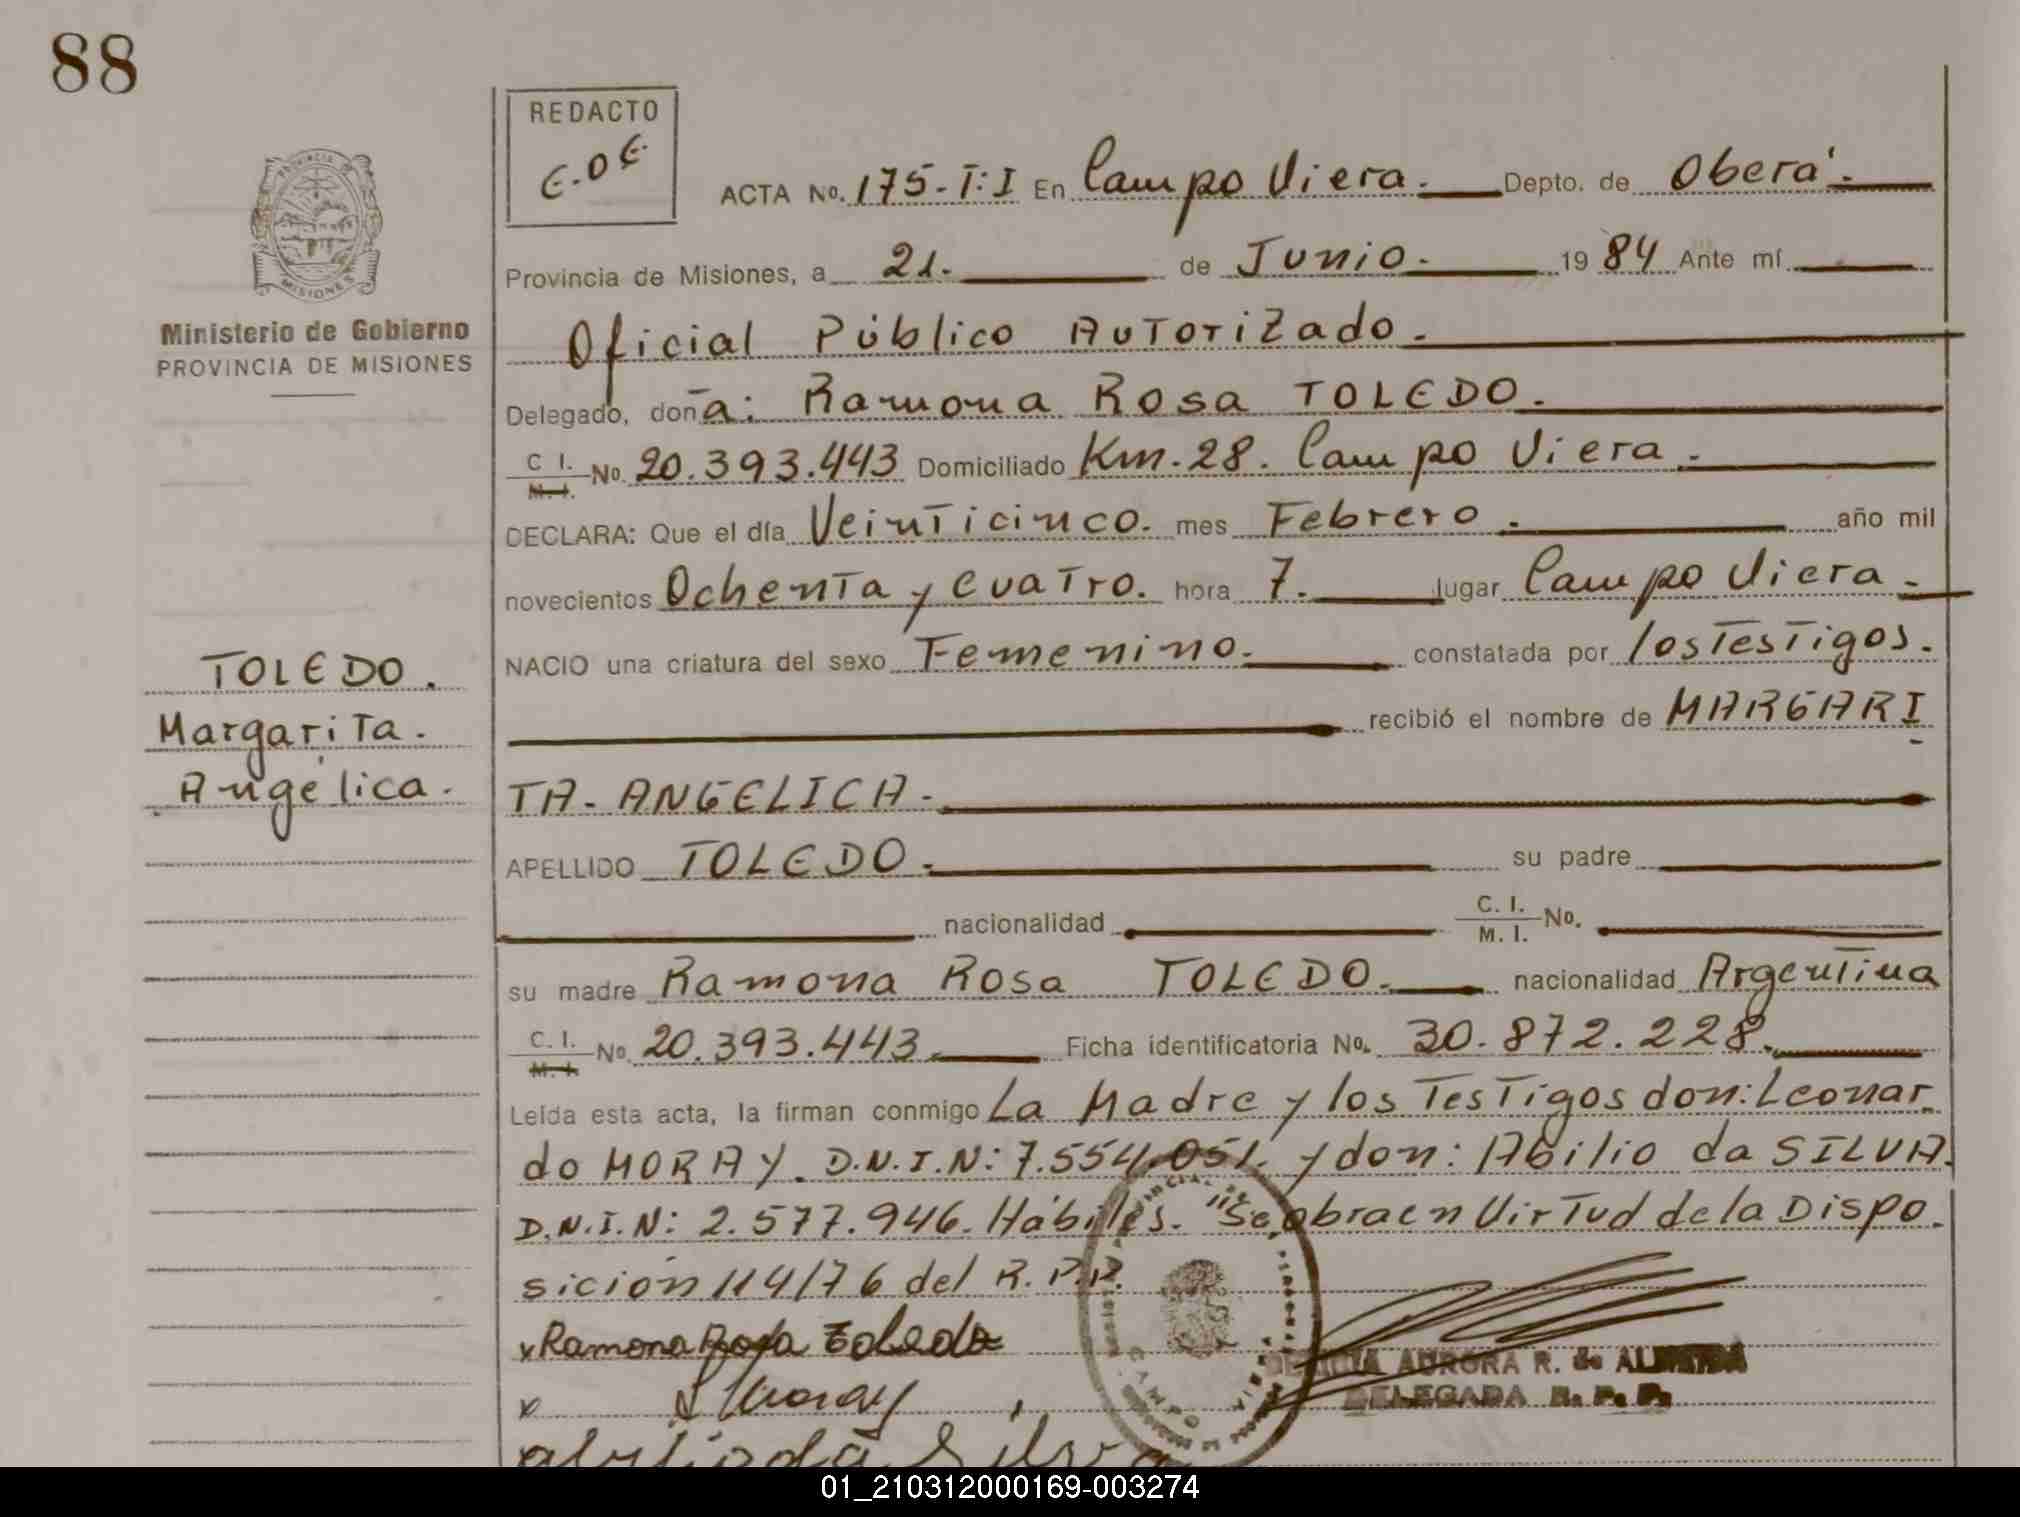 88
REDACTO
E.D.E.
ACTA No. 175-T:I En Campo Viera. Depto. de Oberá.
Provincia de Misiones, a 21. de Junio. 1984 Ante mí
PROVINCIA
MISIONES
Ministerio de Gobierno
PROVINCIA DE MISIONES
Oficial Público Autorizado.
Delegado, doña: Ramona Rosa TOLEDO.
C I. M. I. No. 20.393.443 Domiciliado Km. 28. Campo Viera.
DECLARA: Que el día Veinticinco. mes Febrero. año mil
novecientos Ochenta y cuatro. hora 7. lugar Campo Viera.
NACIO una criatura del sexo Femenino. constatada por los Testigos.
recibió el nombre de MARGARI
TA- ANGELICA.
TOLEDO.
Margarita.
Angélica.
APELLIDO TOLEDO. su padre
nacionalidad C. I. M. I. No.
su madre Ramona Rosa TOLEDO. nacionalidad Argentina
C. I. M. I. No. 20.393.443. Ficha identificatoria No. 30.872.228.
Leída esta acta, la firman conmigo La Madre y los Testigos don: Leonar
do MORAY. D.N.I.N: 7.554.051. y don: Abilio da SILVA.
D.N.I.N: 2.577.946. Hábiles. "Se obra en Virtud de la Dispo.
sición 114/76 del R.P.P.
x Ramona Rosa Toledo
x L Moray
abiliodá Silva
CAMPO
AURORA R. de
DELEGADA R. P. P.
01_210312000169-003274